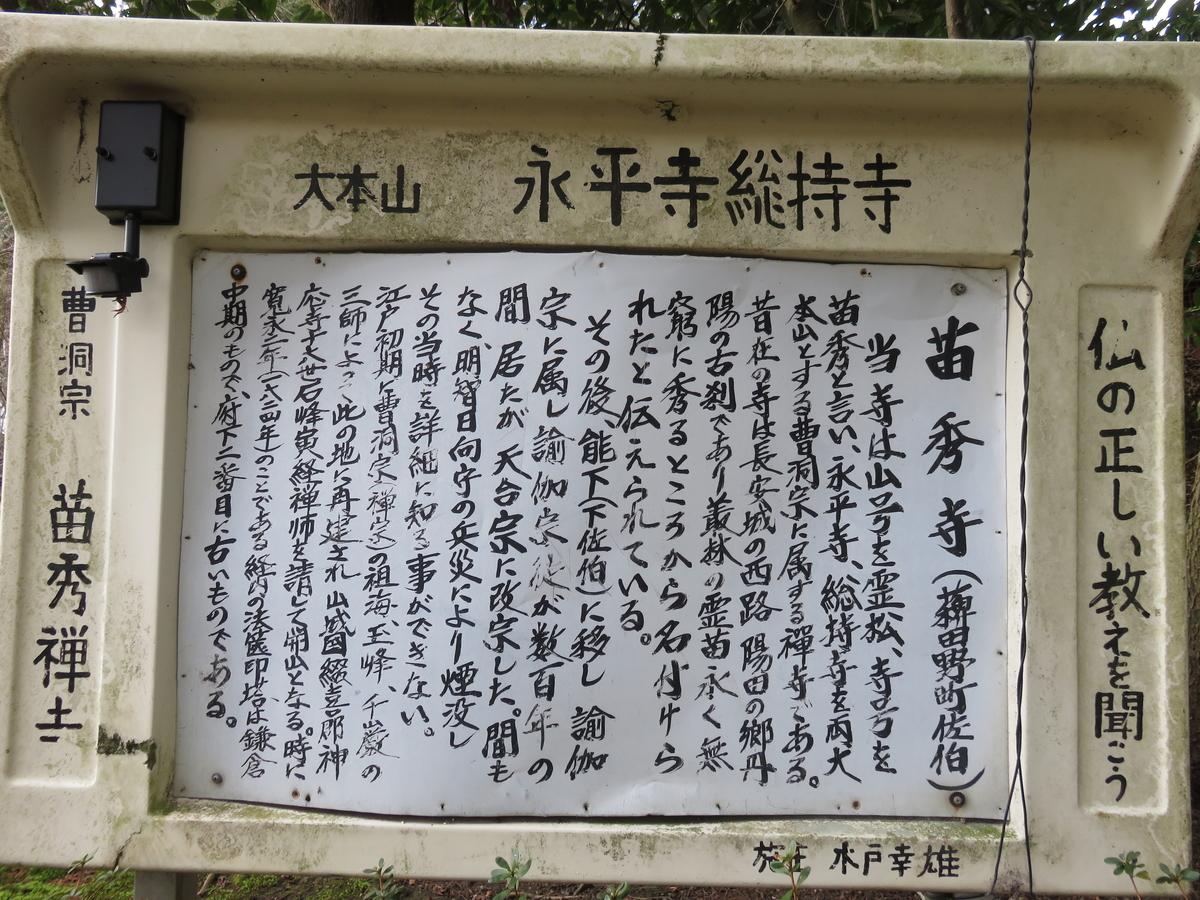 大本山 永平寺総持寺
仏の正しい教えを聞こう
苗秀寺(薭田野町佐伯)
当寺は山号を霊松、寺号を
苗秀と言い、永平寺、総持寺を両大
本山とする曹洞宗に属する禅寺である。
昔在の寺は長安城の西路 陽田の郷丹
陽の古刹であり叢林の霊苗永く無
窮に秀るところから名付けら
れたと伝えられている。
その後、能下(下佐伯)に移し 諭伽
宗に属し諭伽宗徒が数百年の
間 居たが 天台宗に改宗した。間も
なく、明智日向守の兵災により煙没し
その当時を詳細に知る事ができない。
江戸初期に曹洞宗(禅宗)の祖海、玉峰、千巌の
三師によって此の地に再建され 山城国綴喜郡神
応寺十七世石峰寅経禅师を請して開山となる。時に
寛永元年(一六二四年)のことである 経内の法篋印塔は鎌倉
中期のもので、府下二番目に古いものである。
曹洞宗 苗秀禅士
施主 木戸幸雄